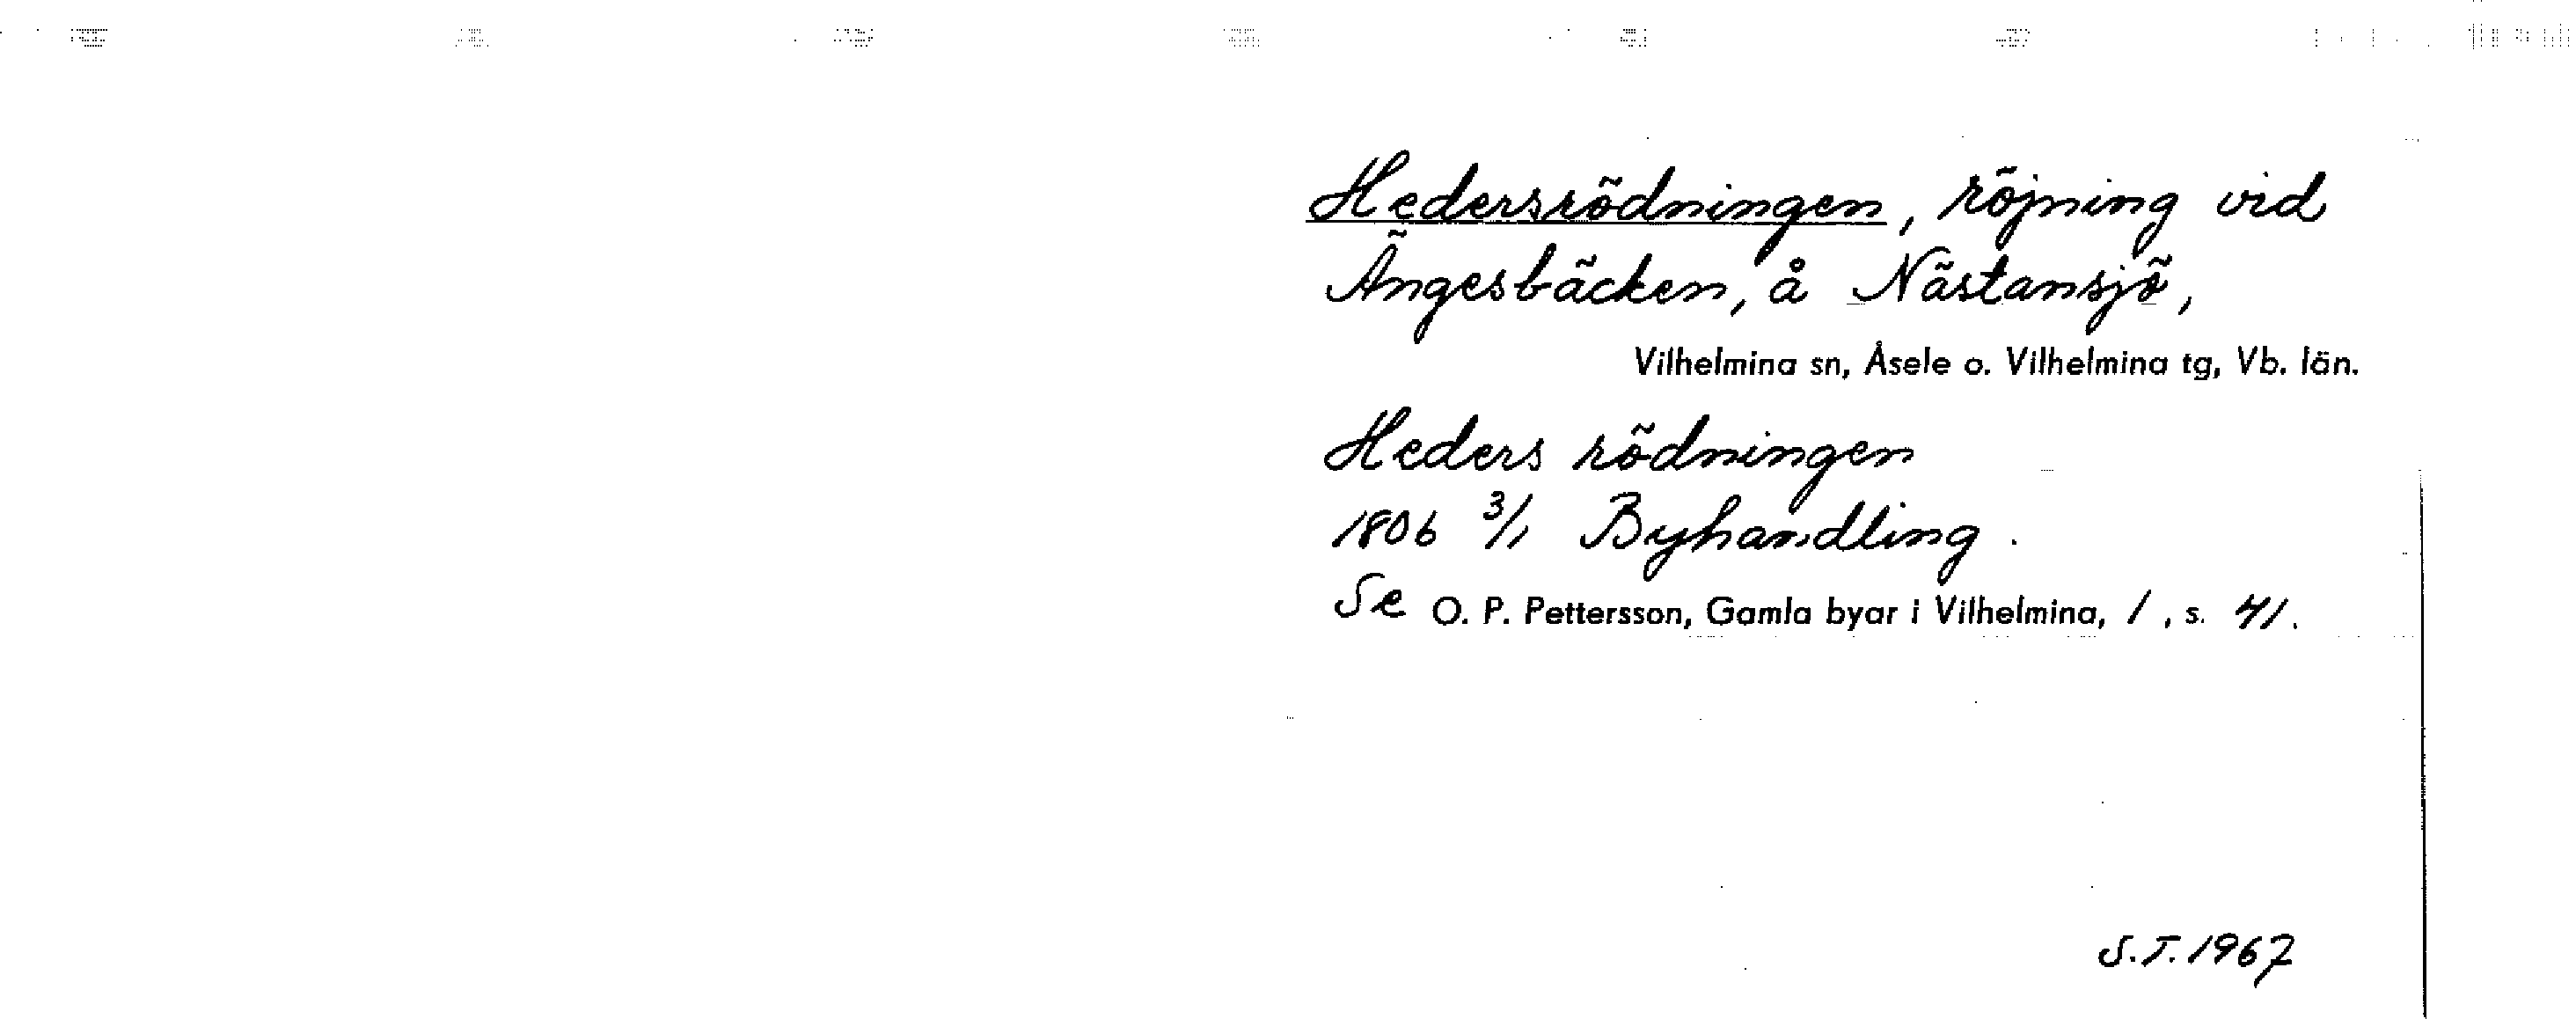 Hedersrödningen, röjning vid
Ängesbäcken, å Nästansjö,
Vilhelmina sn, Åsele o. Vilhelmina tg, Vb. län.
Heders rödningen
1806 3/1 Byhandling.
Se O. P. Pettersson, Gamla byar i Vilhelmina, 1, s. 41.
S.T. 1967